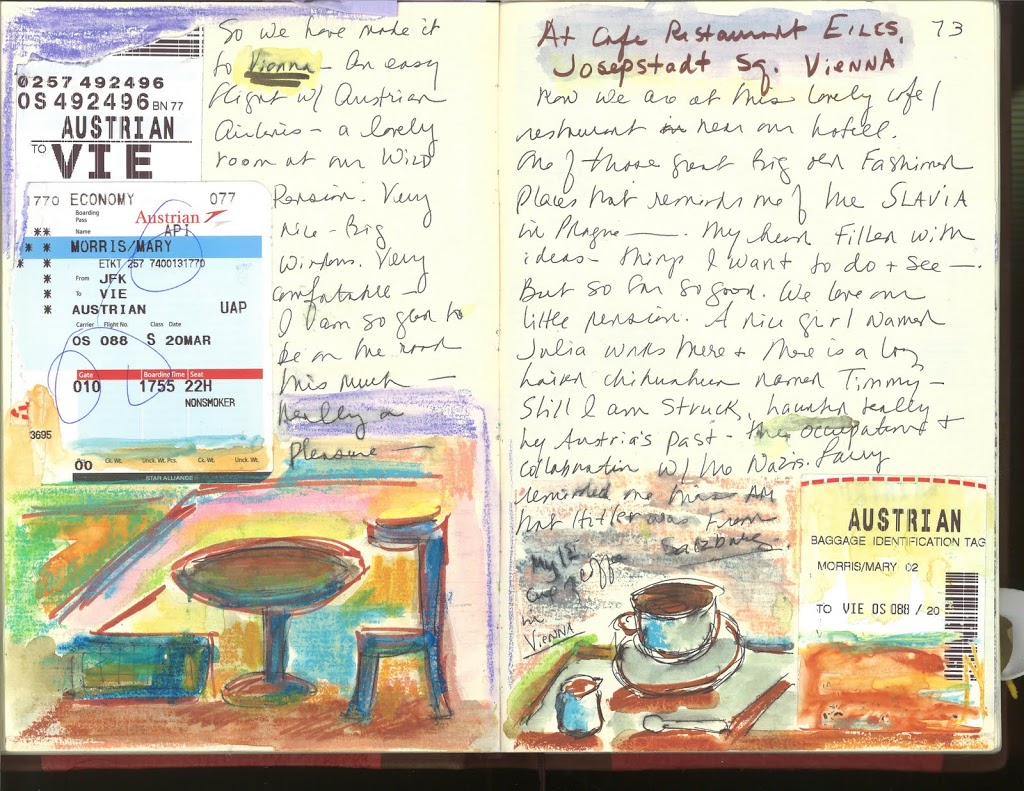 0257 492496
OS 492496 BN 77
AUSTRIAN
TO VIE
1770 ECONOMY 077
Boarding Pass
Austrian
** Name API
* * MORRIS/MARY
* * ETKT 257 7400131770
* From JFK
* To VIE
* AUSTRIAN UAP
Carrier Flight No. Class Date
OS 088 S 20MAR
Gate Boarding Time Seat
010 1755 22H
NONSMOKER
3695
00
Ck. Wt. Unck. Wt. Pcs. Ck. Wt. Unck. Wt.
STAR ALLIANCE
So we have made it
to Vienna – An easy
Flight w/ Austrian
Airlines – a lovely
room at our Wild
Pension. Very
nice – Big
Windows. Very
comfortable –
I am so glad to
be on the road
this much –
Really a
pleasure —
73
At Cafe Restaurant EILES,
Josepstadt Sq. VIENNA
Now we are at this lovely cafe/
restaurant near our hotel.
One of those great big old Fashioned
places that reminds me of the SLAVIA
in Prague —. My head filled with
ideas – things I want to do + see —.
But so far so good. We love our
little pension. A nice girl named
Julia works there + there is a long
haired chihuahua named Timmy –
Still I am struck, haunted really
by Austria's past – the occupation +
collaboration w/ the Nazis. Larry
reminded me
that Hitler was from
Salzburg.
My 1st
cup of coffee
in
VIENNA
AUSTRIAN
BAGGAGE IDENTIFICATION TAG
MORRIS/MARY 02
TO VIE OS 088 / 20